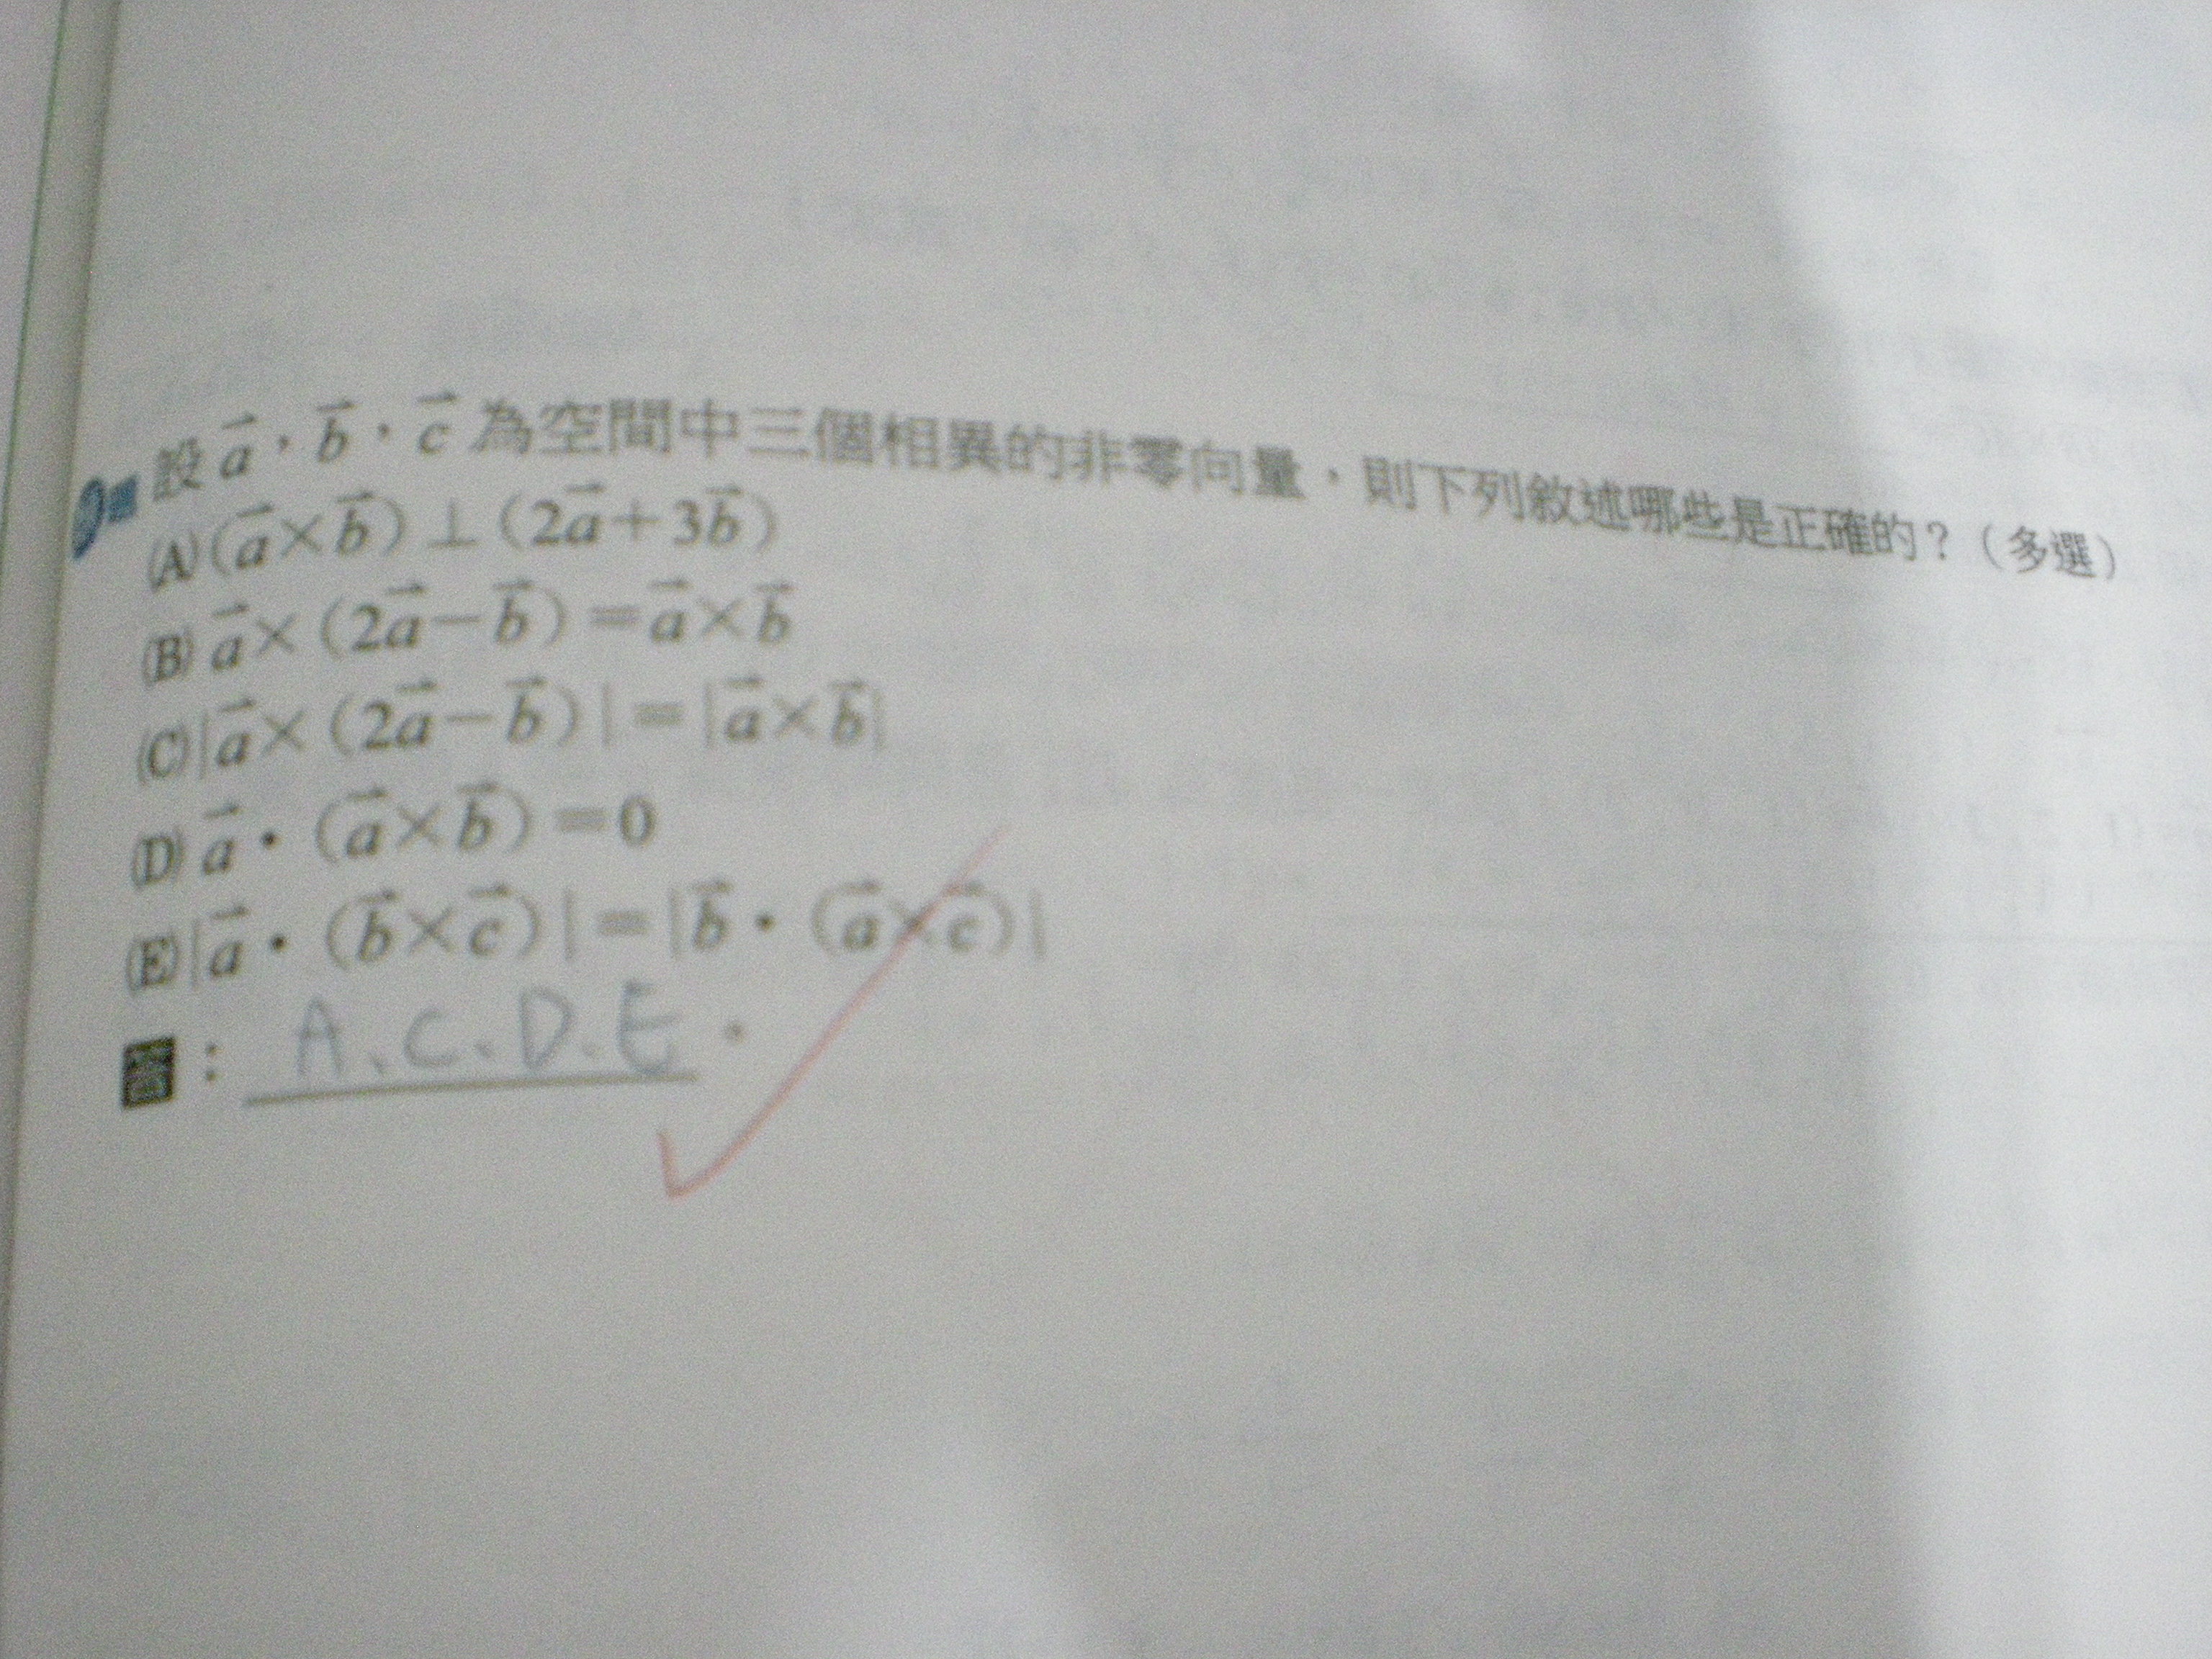 設 $\vec{a}$,$\vec{b}$,$\vec{c}$ 為空間中三個相異的非零向量,則下列敘述哪些是正確的?(多選)
(A) ($\vec{a}$×$\vec{b}$)⊥(2$\vec{a}$+3$\vec{b}$)
(B) $\vec{a}$×(2$\vec{a}$−$\vec{b}$)=$\vec{a}$×$\vec{b}$
(C) |$\vec{a}$×(2$\vec{a}$−$\vec{b}$)|=|$\vec{a}$×$\vec{b}$|
(D) $\vec{a}$・($\vec{a}$×$\vec{b}$)=0
(E) |$\vec{a}$・($\vec{b}$×$\vec{c}$)|=|$\vec{b}$・($\vec{a}$×$\vec{c}$)|
答:A、C、D、E。